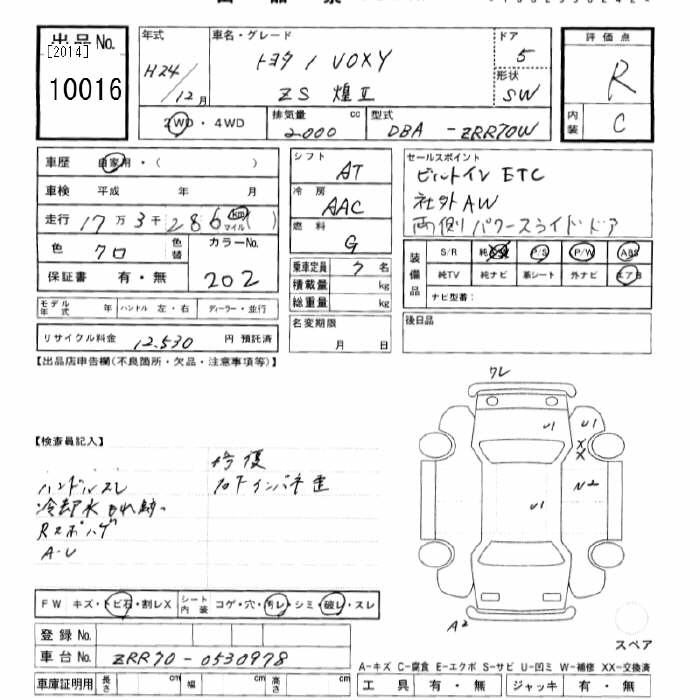 出品No.
[2014]
10016
年式
H24/12月
車名・グレード
トヨタ / VOXY
ZS 煌Ⅱ
ドア
5
形状
SW
評価点
R
内装
C
2WD・4WD
排気量
2000 cc
型式
DBA - ZRR70W
車歴 自家用・( )
車検 平成 年 月
走行 17万3千286 km マイル ( )
色 クロ 色替
カラーNo.
202
保証書 有・無
モデル年式 年 ハンドル 左・右 ディーラー・並行
リサイクル料金 12,530 円 預託済
シフト
AT
冷房
AAC
燃料
G
乗車定員 7 名
積載量 kg
総重量 kg
名変期限
月 日
セールスポイント
ビルトイン ETC
社外AW
両側パワースライドドア
装備品
S/R P/S P/W ABS
純TV 純ナビ 革シート 外ナビ エアB
ナビ型番:
後日品
【出品店申告欄(不良箇所・欠品・注意事項等)】
【検査員記入】
ハンドルスレ
冷却水
A-U
修復
ワレ
U1
U1
X
X
U1
A2
スペア
FW キズ・トビ石・割レX シート内装 コゲ・穴・汚レ・シミ・破レ・スレ
登録No.
車台No. ZRR70-0530978
車庫証明用 長さ cm 幅 cm 高さ cm
A-キズ C-腐食 E-エクボ S-サビ U-凹ミ W-補修 XX-交換済
工具 有・無 ジャッキ 有・無